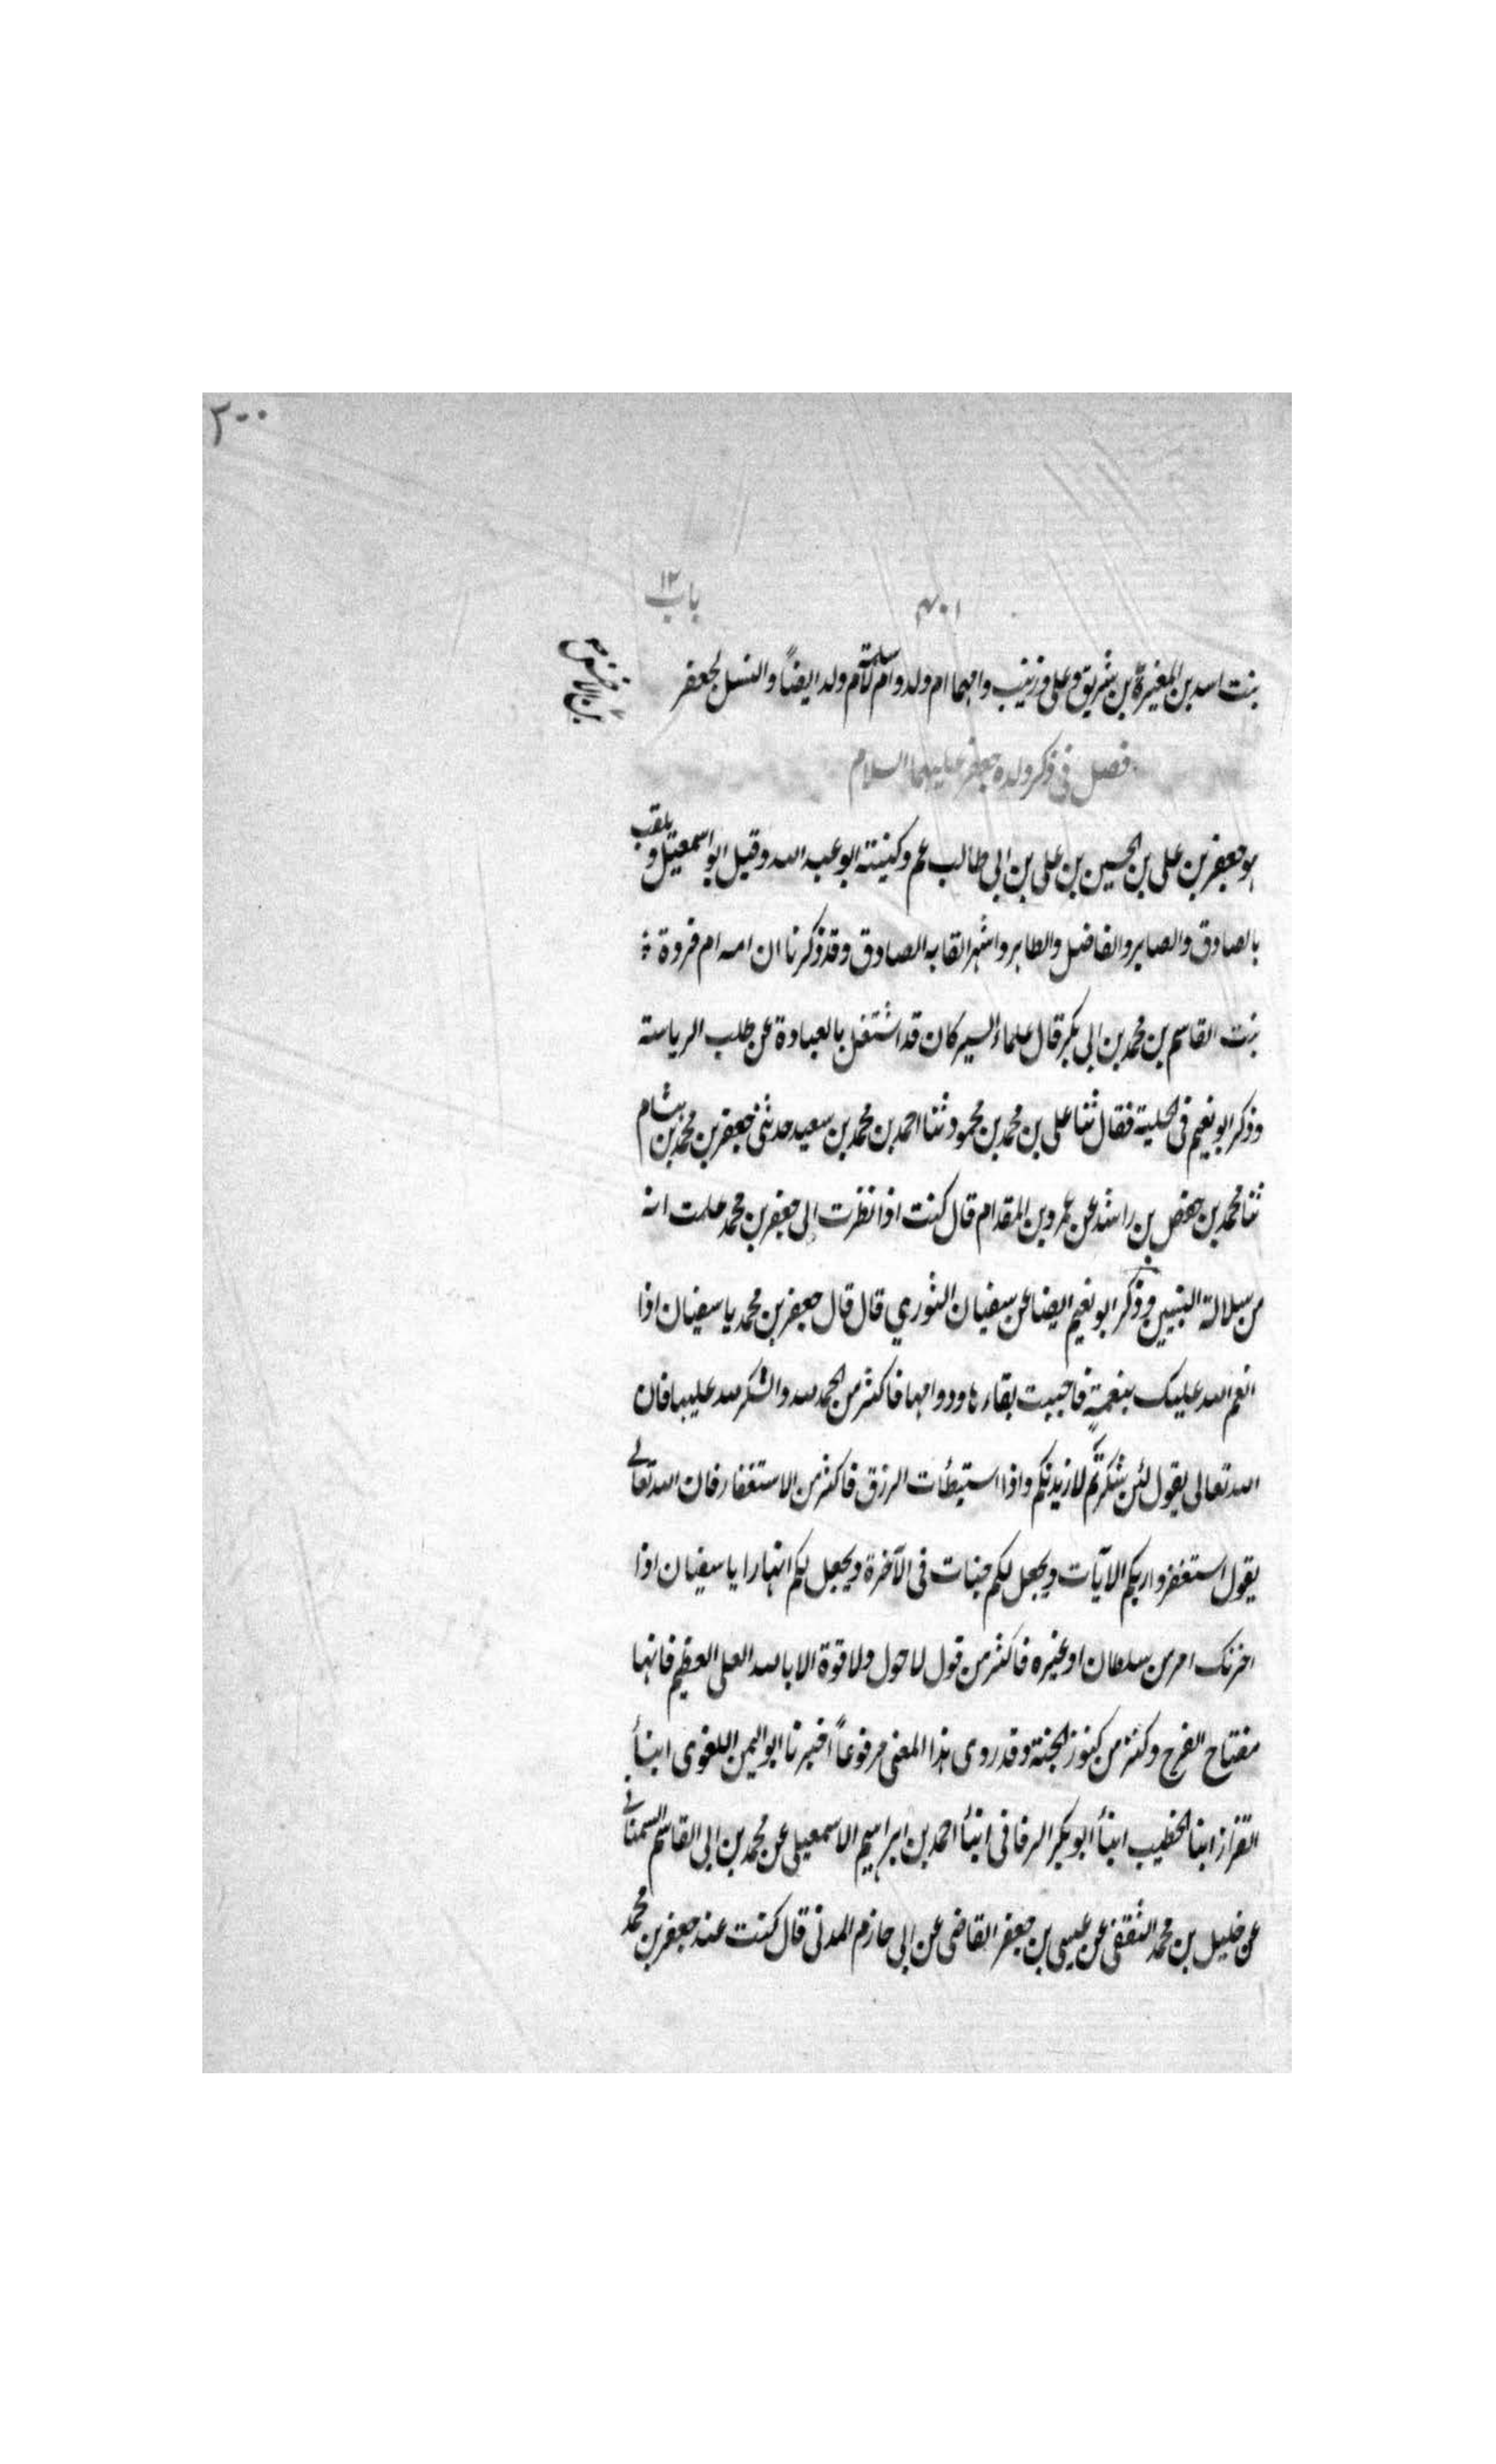 ٢٠٠
باب ١٢
بنت اسد بن المغيرة بن شريق وعلى وزينب وامهما ام ولد وام سلمة لام ولد ايضاً والنسل لجعفر
بن الاخنس
فصل فى ذكر ولده جعفر عليهما السلام
هو جعفر بن على بن الحسين بن على بن ابى طالب عم وكنيته ابو عبد الله وقيل ابو اسمعيل ويلقب
بالصادق والصابر والفاضل والطاهر واشهر القابه الصادق وقد ذكرنا ان امه ام فروة
بنت القاسم بن محمد بن ابى بكر قال علماء السير كان قد اشتغل بالعبادة عن طلب الرياسته
وذكر ابو نعيم فى الحلية فقال ثنا على بن محمد بن محمود ثنا احمد بن محمد بن سعيد حدثنى جعفر بن محمد بن هشام
ثنا محمد بن حفص بن راشد عن عمرو بن المقدام قال كنت اذا نظرت الى جعفر بن محمد علمت انه
من سلالة النبيين وذكر ابو نعيم ايضا عن سفيان الثوري قال قال جعفر بن محمد يا سفيان اذا
انعم الله عليك بنعمة فاحببت بقاءها ودوامها فاكثر من الحمد لله والشكر لله عليها فان
الله تعالى يقول لئن شكرتم لازيدنكم واذا استبطأت الرزق فاكثر من الاستغفار فان الله تعالى
يقول استغفروا ربكم الآيات ويجعل لكم جنات فى الآخرة ويجعل لكم انهارا يا سفيان اذا
احزنك امر من سلطان او غيره فاكثر من قول لا حول ولا قوة الا بالله العلى العظيم فانها
مفتاح الفرج وكنز من كنوز الجنة وقد روى هذا المعنى مرفوعاً اخبرنا ابو اليمن اللغوى انبأ
القزاز انبا الخطيب انبأ ابو بكر البرقانى انبأ احمد بن ابراهيم الاسمعيلى عن محمد بن ابى القاسم السمنانى
عن خليل بن محمد الثقفى عن عيسى بن جعفر القاضى عن ابى حازم المدنى قال كنت عند جعفر بن محمد